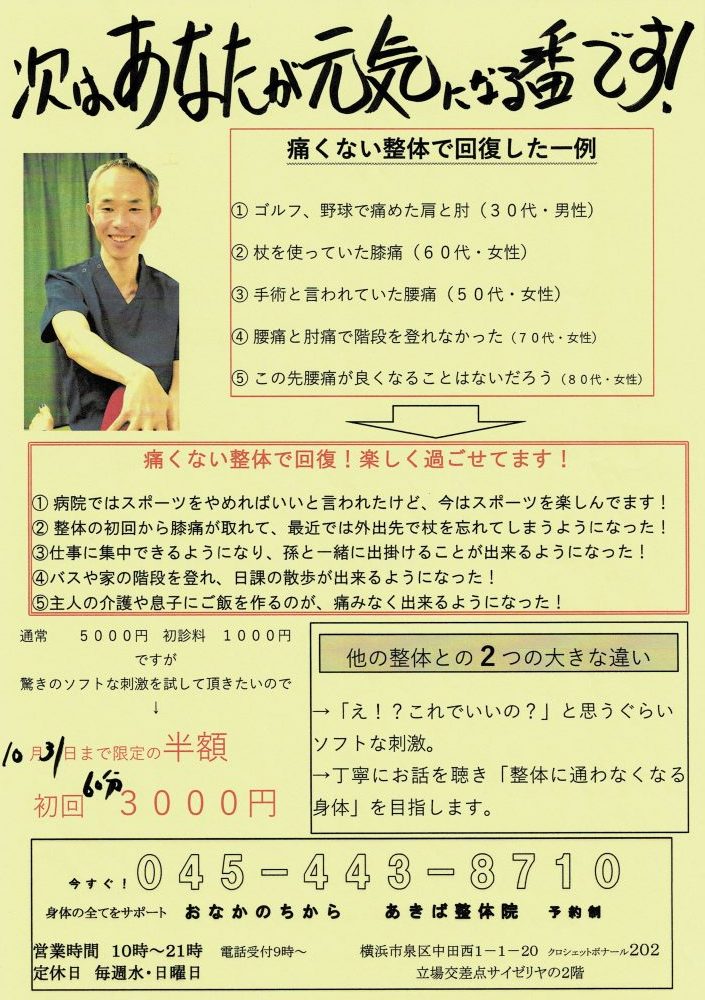 次はあなたが元気になる番です!
痛くない整体で回復した一例
① ゴルフ、野球で痛めた肩と肘（３０代・男性）
② 杖を使っていた膝痛（６０代・女性）
③ 手術と言われていた腰痛（５０代・女性）
④ 腰痛と肘痛で階段を登れなかった（７０代・女性）
⑤ この先腰痛が良くなることはないだろう（８０代・女性）
痛くない整体で回復！楽しく過ごせてます！
① 病院ではスポーツをやめればいいと言われたけど、今はスポーツを楽しんでます！
② 整体の初回から膝痛が取れて、最近では外出先で杖を忘れてしまうようになった！
③仕事に集中できるようになり、孫と一緒に出掛けることが出来るようになった！
④バスや家の階段を登れ、日課の散歩が出来るようになった！
⑤主人の介護や息子にご飯を作るのが、痛みなく出来るようになった！
通常　５０００円　初診料　１０００円
ですが
驚きのソフトな刺激を試して頂きたいので
↓
10月31日まで限定の半額
初回 60分 ３０００円
他の整体との２つの大きな違い
→「え！？これでいいの？」と思うぐらい
ソフトな刺激。
→丁寧にお話を聴き「整体に通わなくなる
身体」を目指します。
今すぐ！０４５－４４３－８７１０
身体の全てをサポート　おなかのちから　あきば整体院　予約制
営業時間　10時～21時　電話受付9時～
定休日　毎週水・日曜日
横浜市泉区中田西1－1－20　クロシェットボナール202
立場交差点サイゼリヤの2階